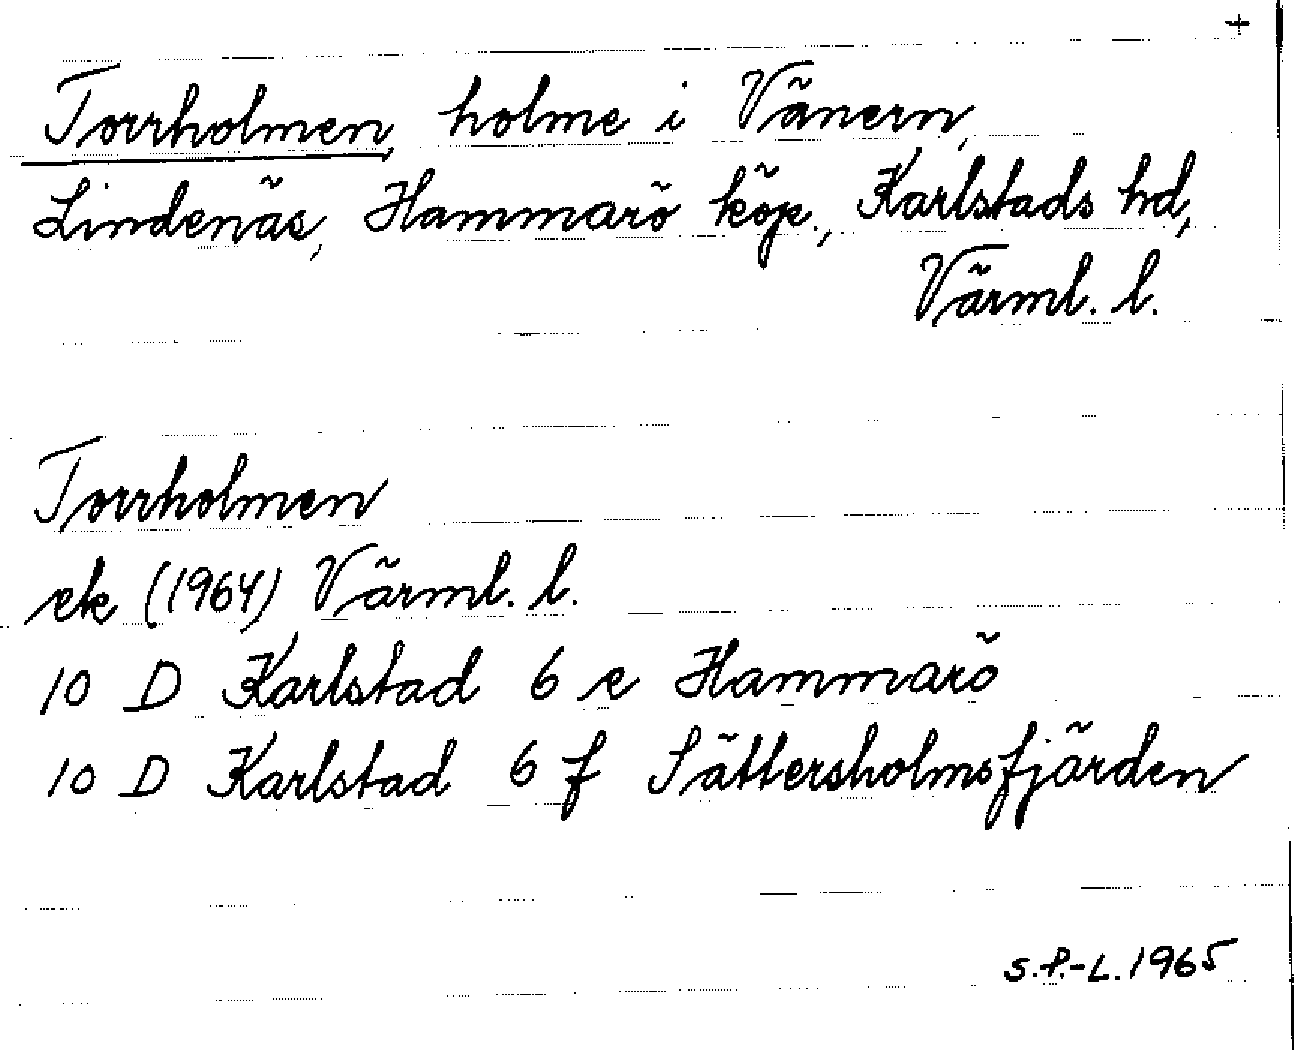 +
Torrholmen, holme i Vänern,
Lindenäs, Hammarö köp., Karlstads hd,
Värml. l.
Torrholmen
ek (1964) Värml. l.
10 D Karlstad 6 e Hammarö
10 D Karlstad 6 f Sättersholmsfjärden
S.P.-L. 1965